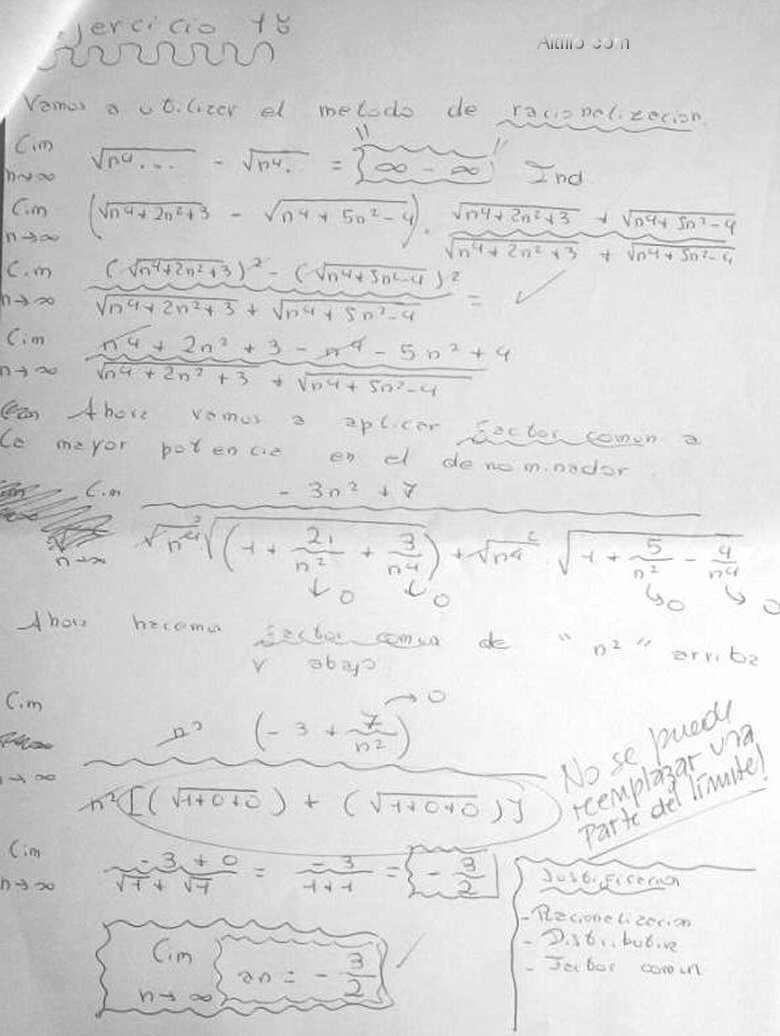 Ejercicio 18
Altillo.com
Vamos a utilizar el metodo de racionalizacion.
Lim n→∞ √n⁴... - √n⁴. = "{∞ - ∞}" Ind
Lim n→∞ (√n⁴+2n²+3 - √n⁴+5n²-4) . √n⁴+2n²+3 + √n⁴+5n²-4 / √n⁴+2n²+3 + √n⁴+5n²-4
Lim n→∞ (√n⁴+2n²+3)² - (√n⁴+5n²-4)² / √n⁴+2n²+3 + √n⁴+5n²-4 = ✓
Lim n→∞ n⁴ + 2n² + 3 - n⁴ - 5n² + 4 / √n⁴+2n²+3 + √n⁴+5n²-4
Ahora vamos a aplicar factor comun a
la mayor potencia en el denominador
Lim n→∞ - 3n² + 7 / √n⁴ √(1 + 2/n² + 3/n⁴) + √n⁴ . √1 + 5/n² - 4/n⁴
↓0 ↓0 ↘0 ↘0
Ahora hacemos factor comun de "n²" arriba
y abajo
Lim n→∞ n² (-3 + 7/n²) →0 / n² [(√1+0+0) + (√1+0+0)]
No se puede
reemplazar una
parte del límite!
Lim n→∞ -3 + 0 / √1 + √1 = -3 / 1+1 = - 3/2
Lim n→∞ an = - 3/2 ✓
- Racionalizacion
- Distributiva
- Factor comun